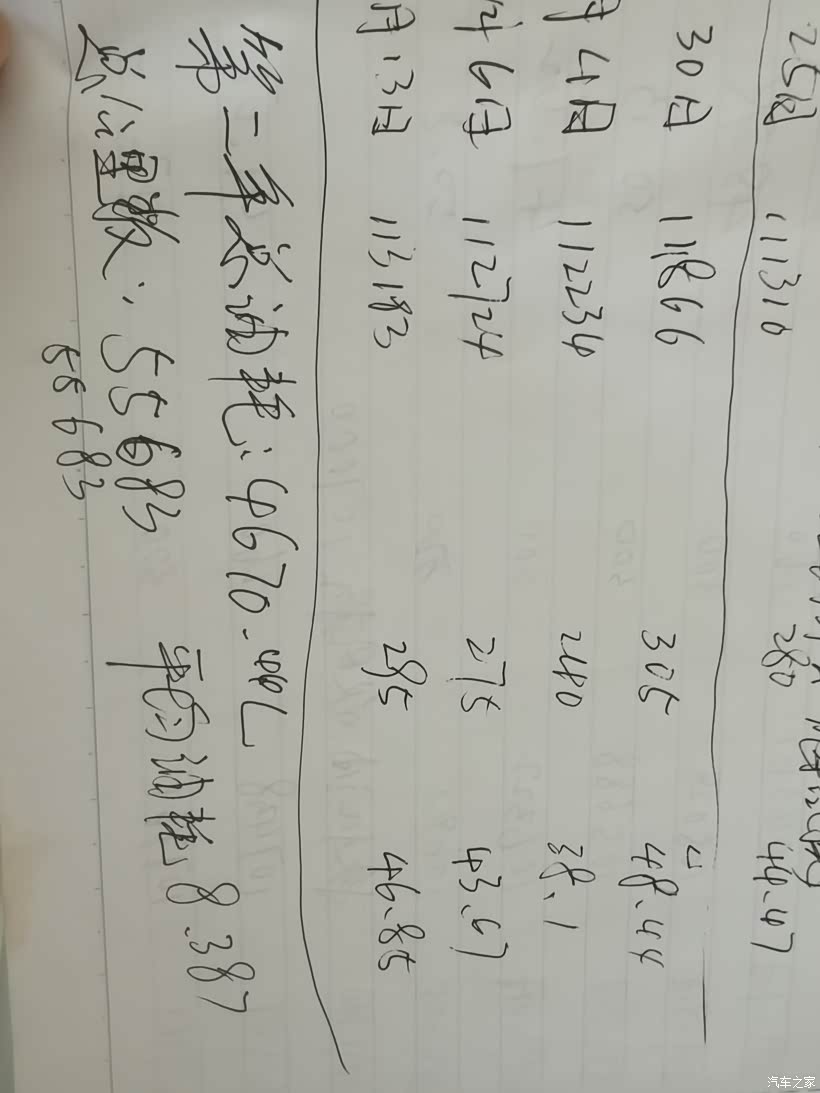 25日 111310 280 44.47
30日 111866 305 48.44
月4日 112234 240 38.1
月6日 112724 275 43.67
月13日 113183 295 46.85
第二年总油耗:4670.44L
总公里数:55683 平均油耗 8.387
55683
汽车之家